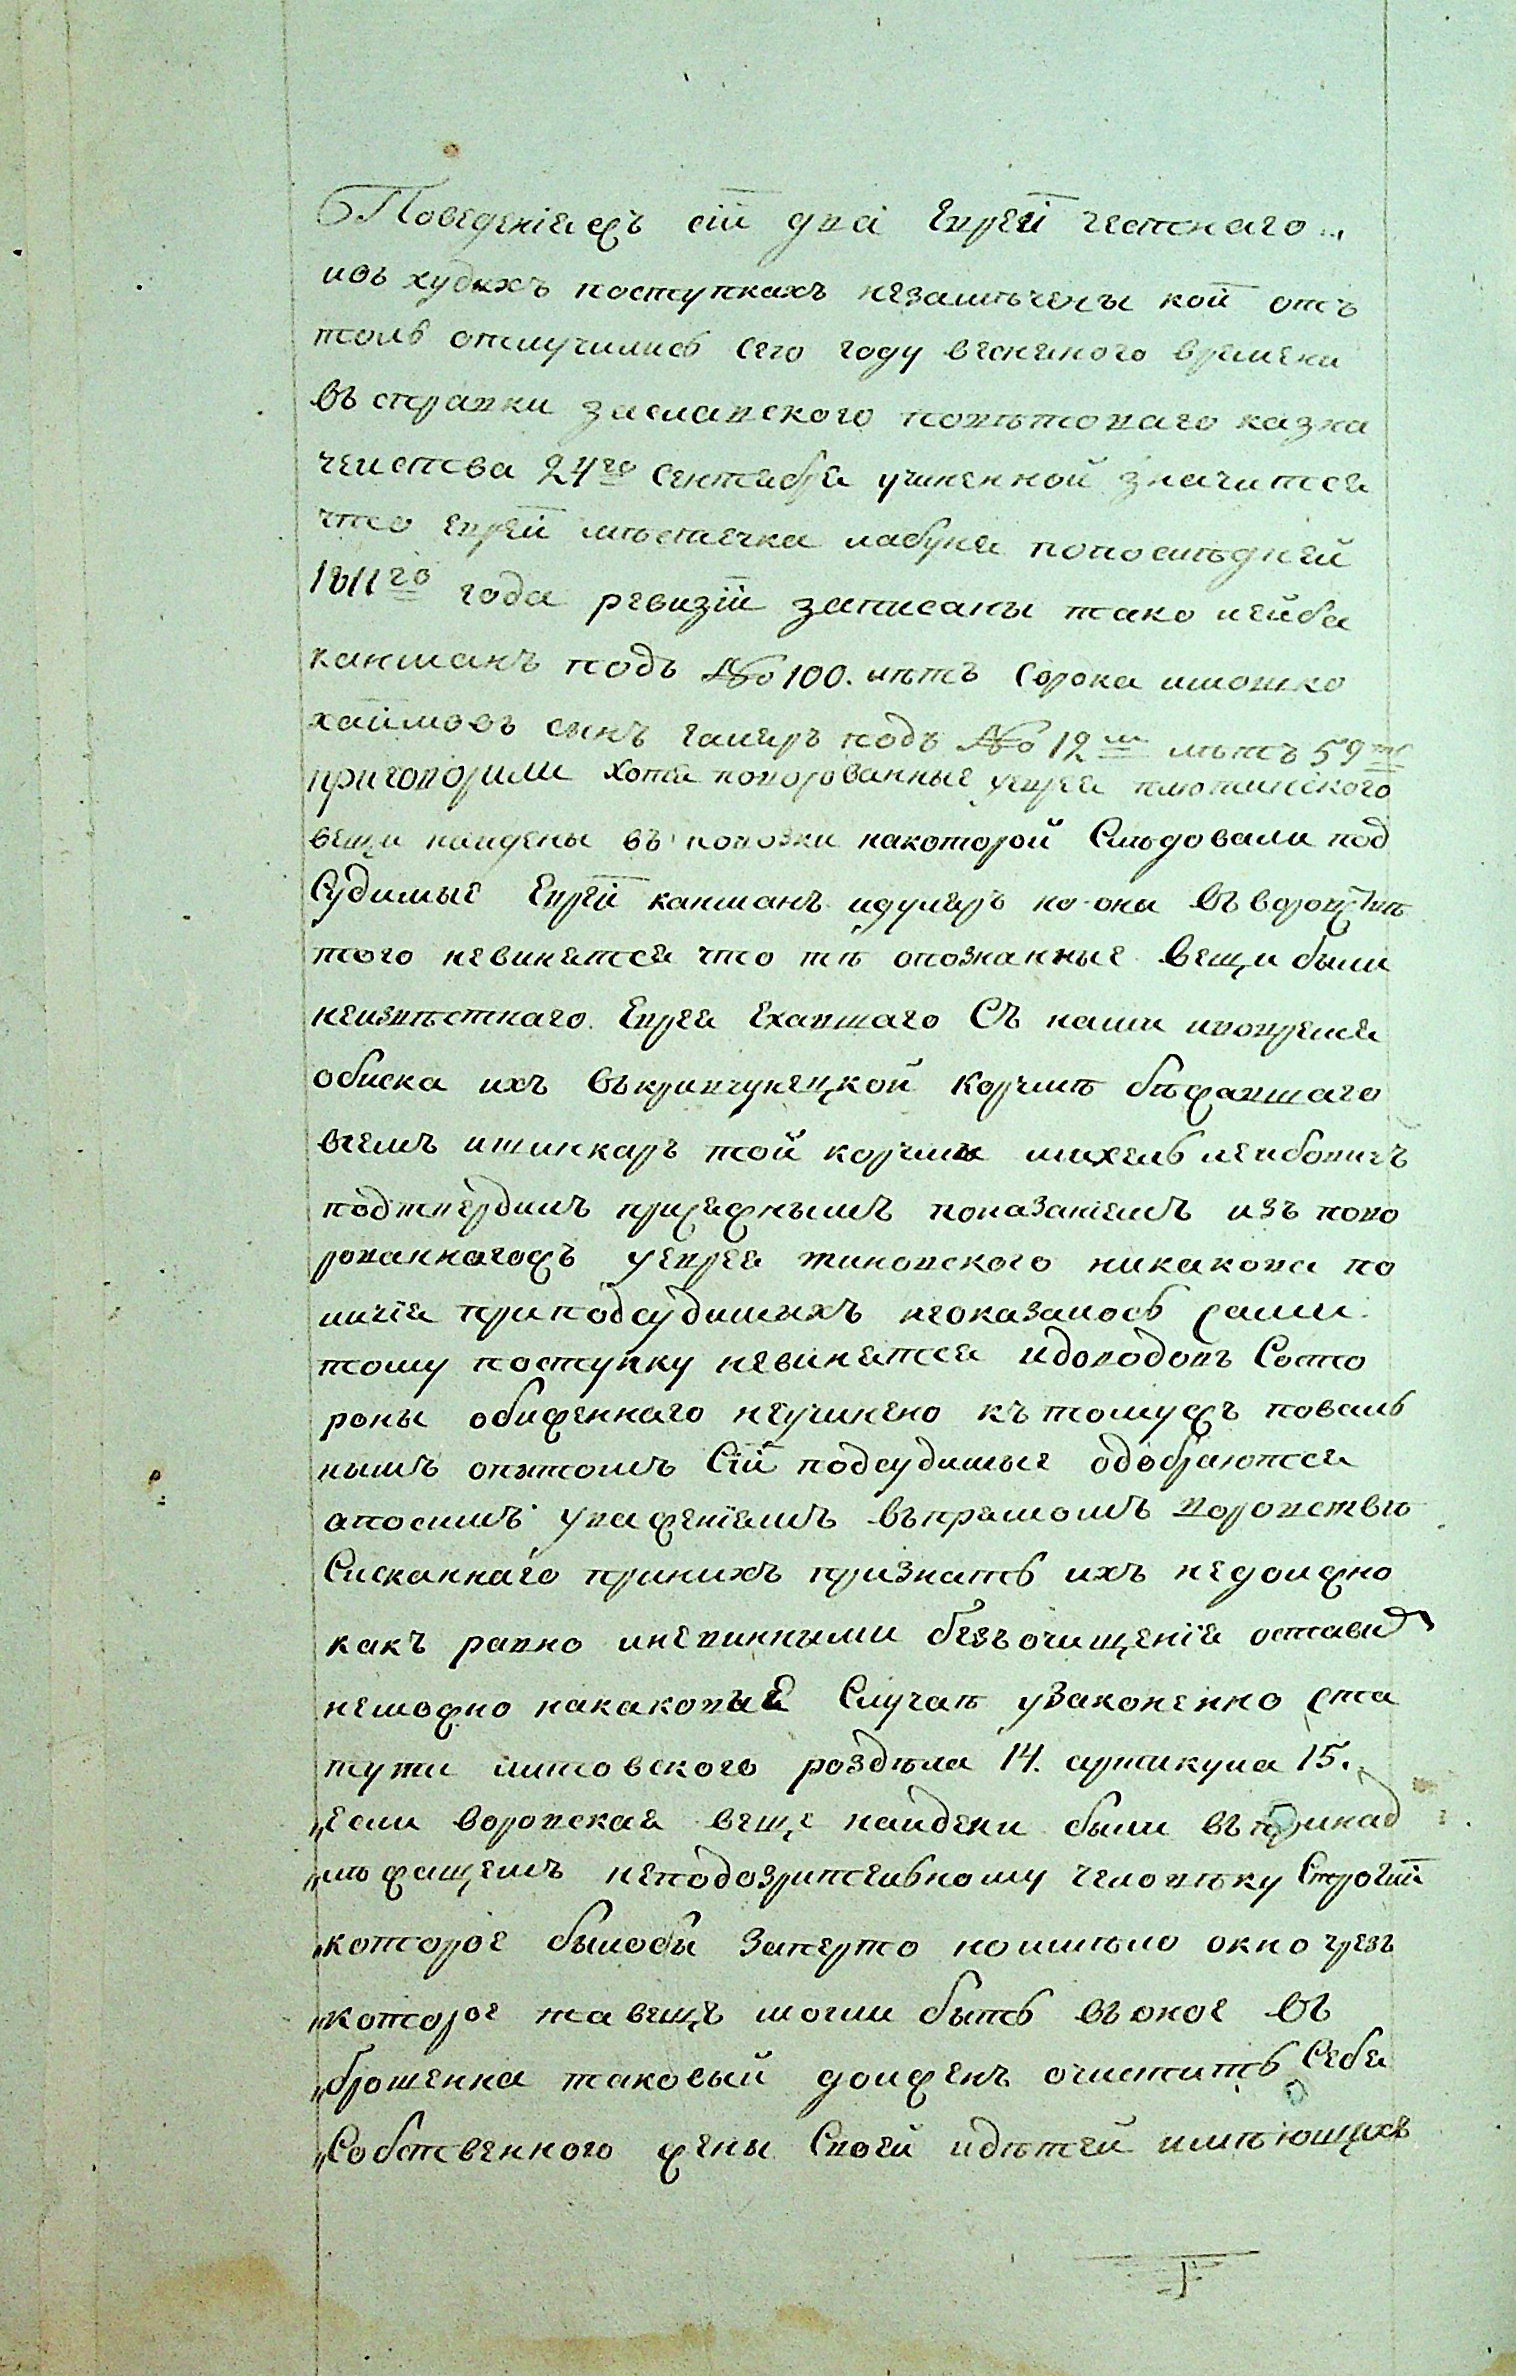 Поведеніежъ сіи два Евреи честнаго
ивъ худыхъ поступкахъ незамѣчены кои отъ
толь отлучились сего году весенного времени
въ справки заславского повѣтоваго казна
чейства 24го Сентября учиненной значится
что евреи мѣстечка лабуня попослѣдней
1811го года ревизіи записаны тако лейба
каншанъ подъ № 100. лѣтъ сорока имошко
хаимовъ сынъ подъ № 12м лѣтъ 59ть
приговорили хотя поворованные уеврея плотинского
вещи найдены въ повозки накоторой Слѣдовали под
Судимые Евреи каншанъ но они въворовствѣ
того невинятся что тѣ опознанные вещи были
неизвѣстнаго Еврея Ехавшаго Съ ними ивовремя
обиска ихъ въкривчунецкой корчмѣ бѣжавшаго
вчемъ ишинкаръ той корчмы михель лейбовичъ
подтвердилъ присяжнымъ показаніемъ изъ пово
рованногожъ уеврея тиновского никакова по
личія приподсудимыхъ неоказалось сами
тому поступку невинятся идоводовъ Состо
роны обиженного неучинено къ томужъ поваль
нымъ опытомъ Сіи подсудимые одобряются
апосимъ уваженіямъ въпрямомъ воровствѣ
Сысканнаго принихъ признать ихъ недолжно
какъ равно иневинными безъ очищенія оставит
неможно накаковые Случаѣ узаконенно ста
тути литовского роздѣла 14. артикула 15.
„Если воровская веще найдени были въ принад
„лѣжащемъ неподозрительному человѣку Строеніи
„которое былобы заперто ноимѣло окно чрезъ
„которое тавещъ могли быть въ оное въ
„брошенна таковый долженъ очистить Себя
„Собственного жены Своей идѣтей имѣющихъ